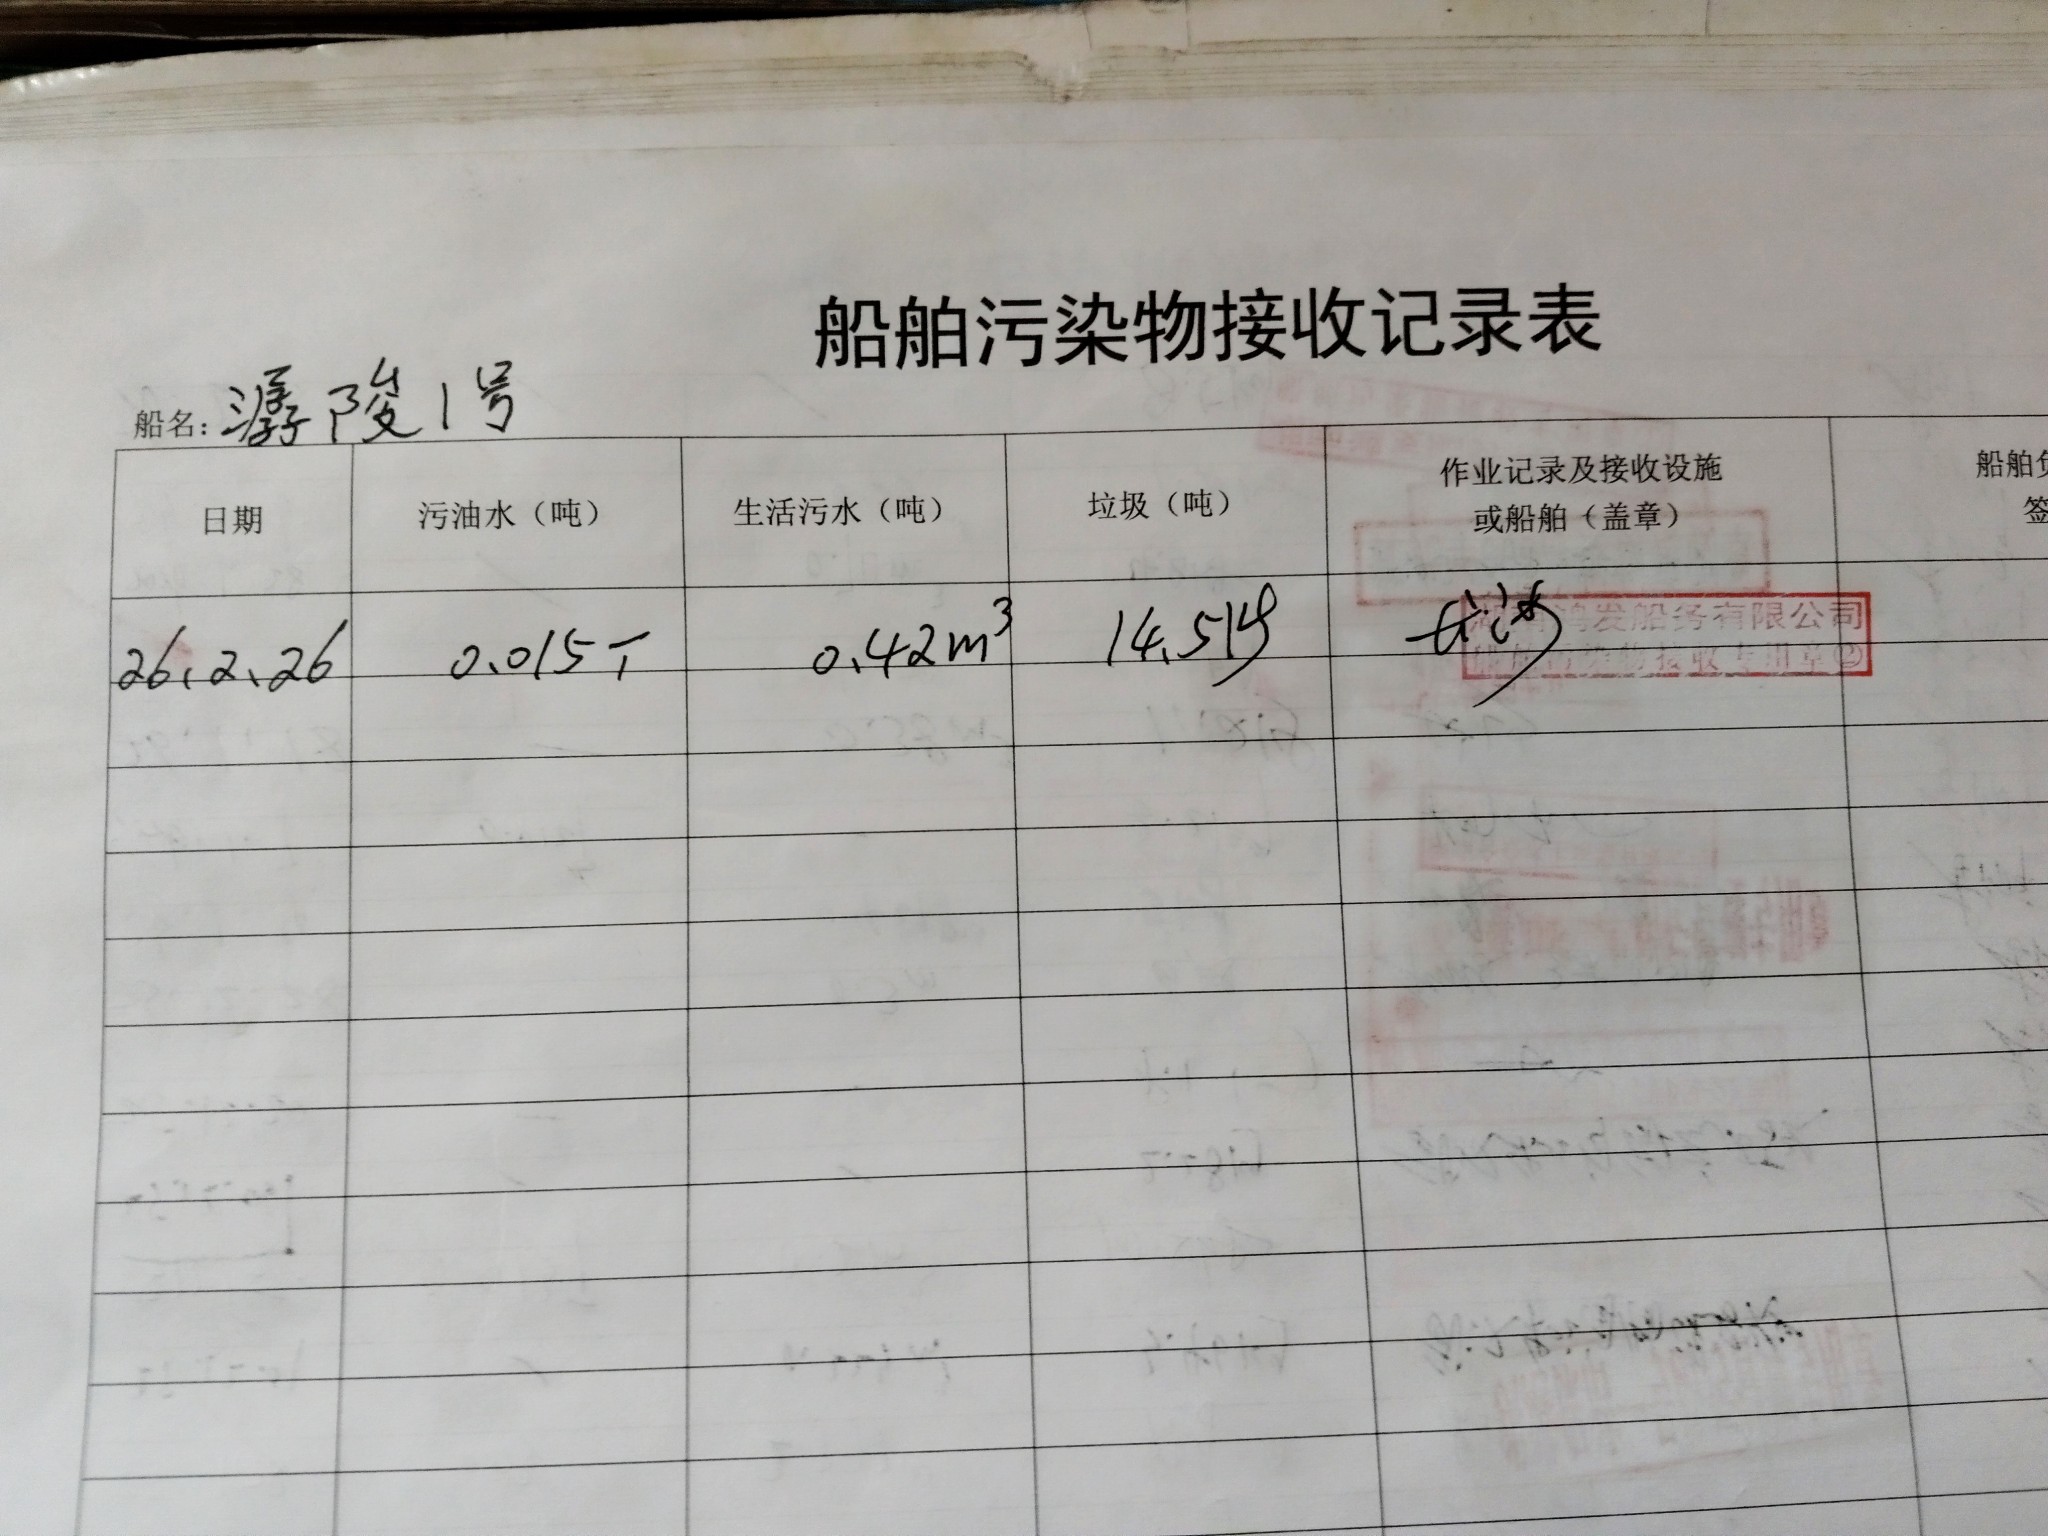 船舶污染物接收记录表
船名: 潺陵1号
日期 污油水（吨） 生活污水（吨） 垃圾（吨） 作业记录及接收设施
或船舶（盖章） 船舶
签
26.2.26 0.015T 0.42m³ 14.5kg
鸿发船务有限公司
船舶污染物接收专用章②